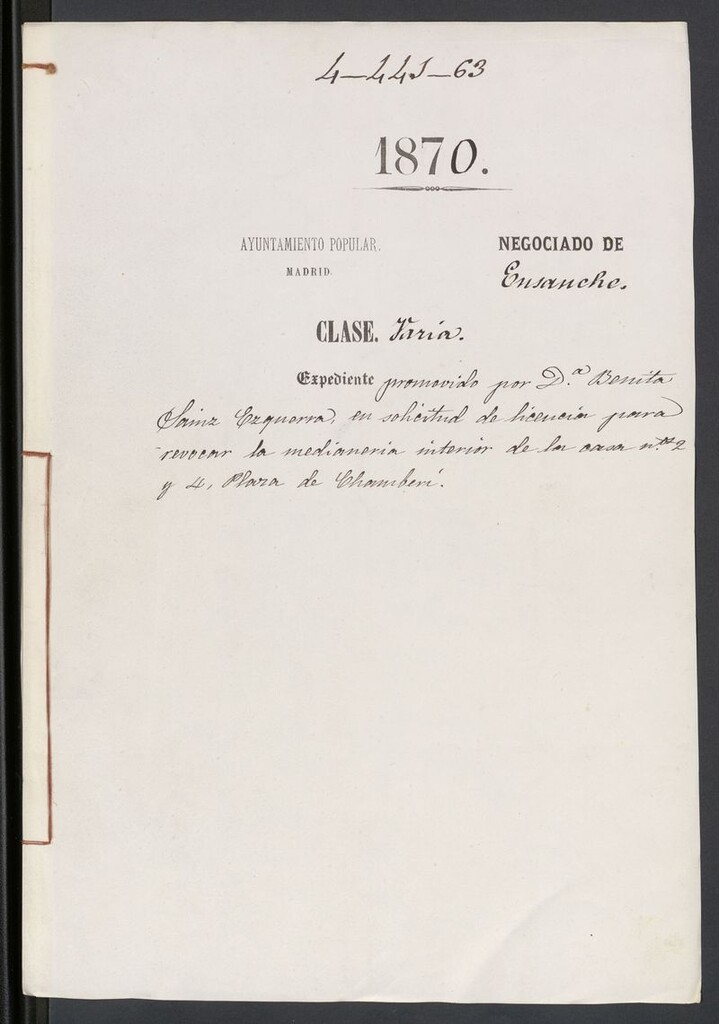 4-441-63
1870.
AYUNTAMIENTO POPULAR.
MADRID.
NEGOCIADO DE
Ensanche.
CLASE. Varia.
Expediente promovido por D.ª Benita
Sainz Ezquerra, en solicitud de licencia para
revocar la medianeria interior de la casa n.os 2
y 4, Plaza de Chamberí.